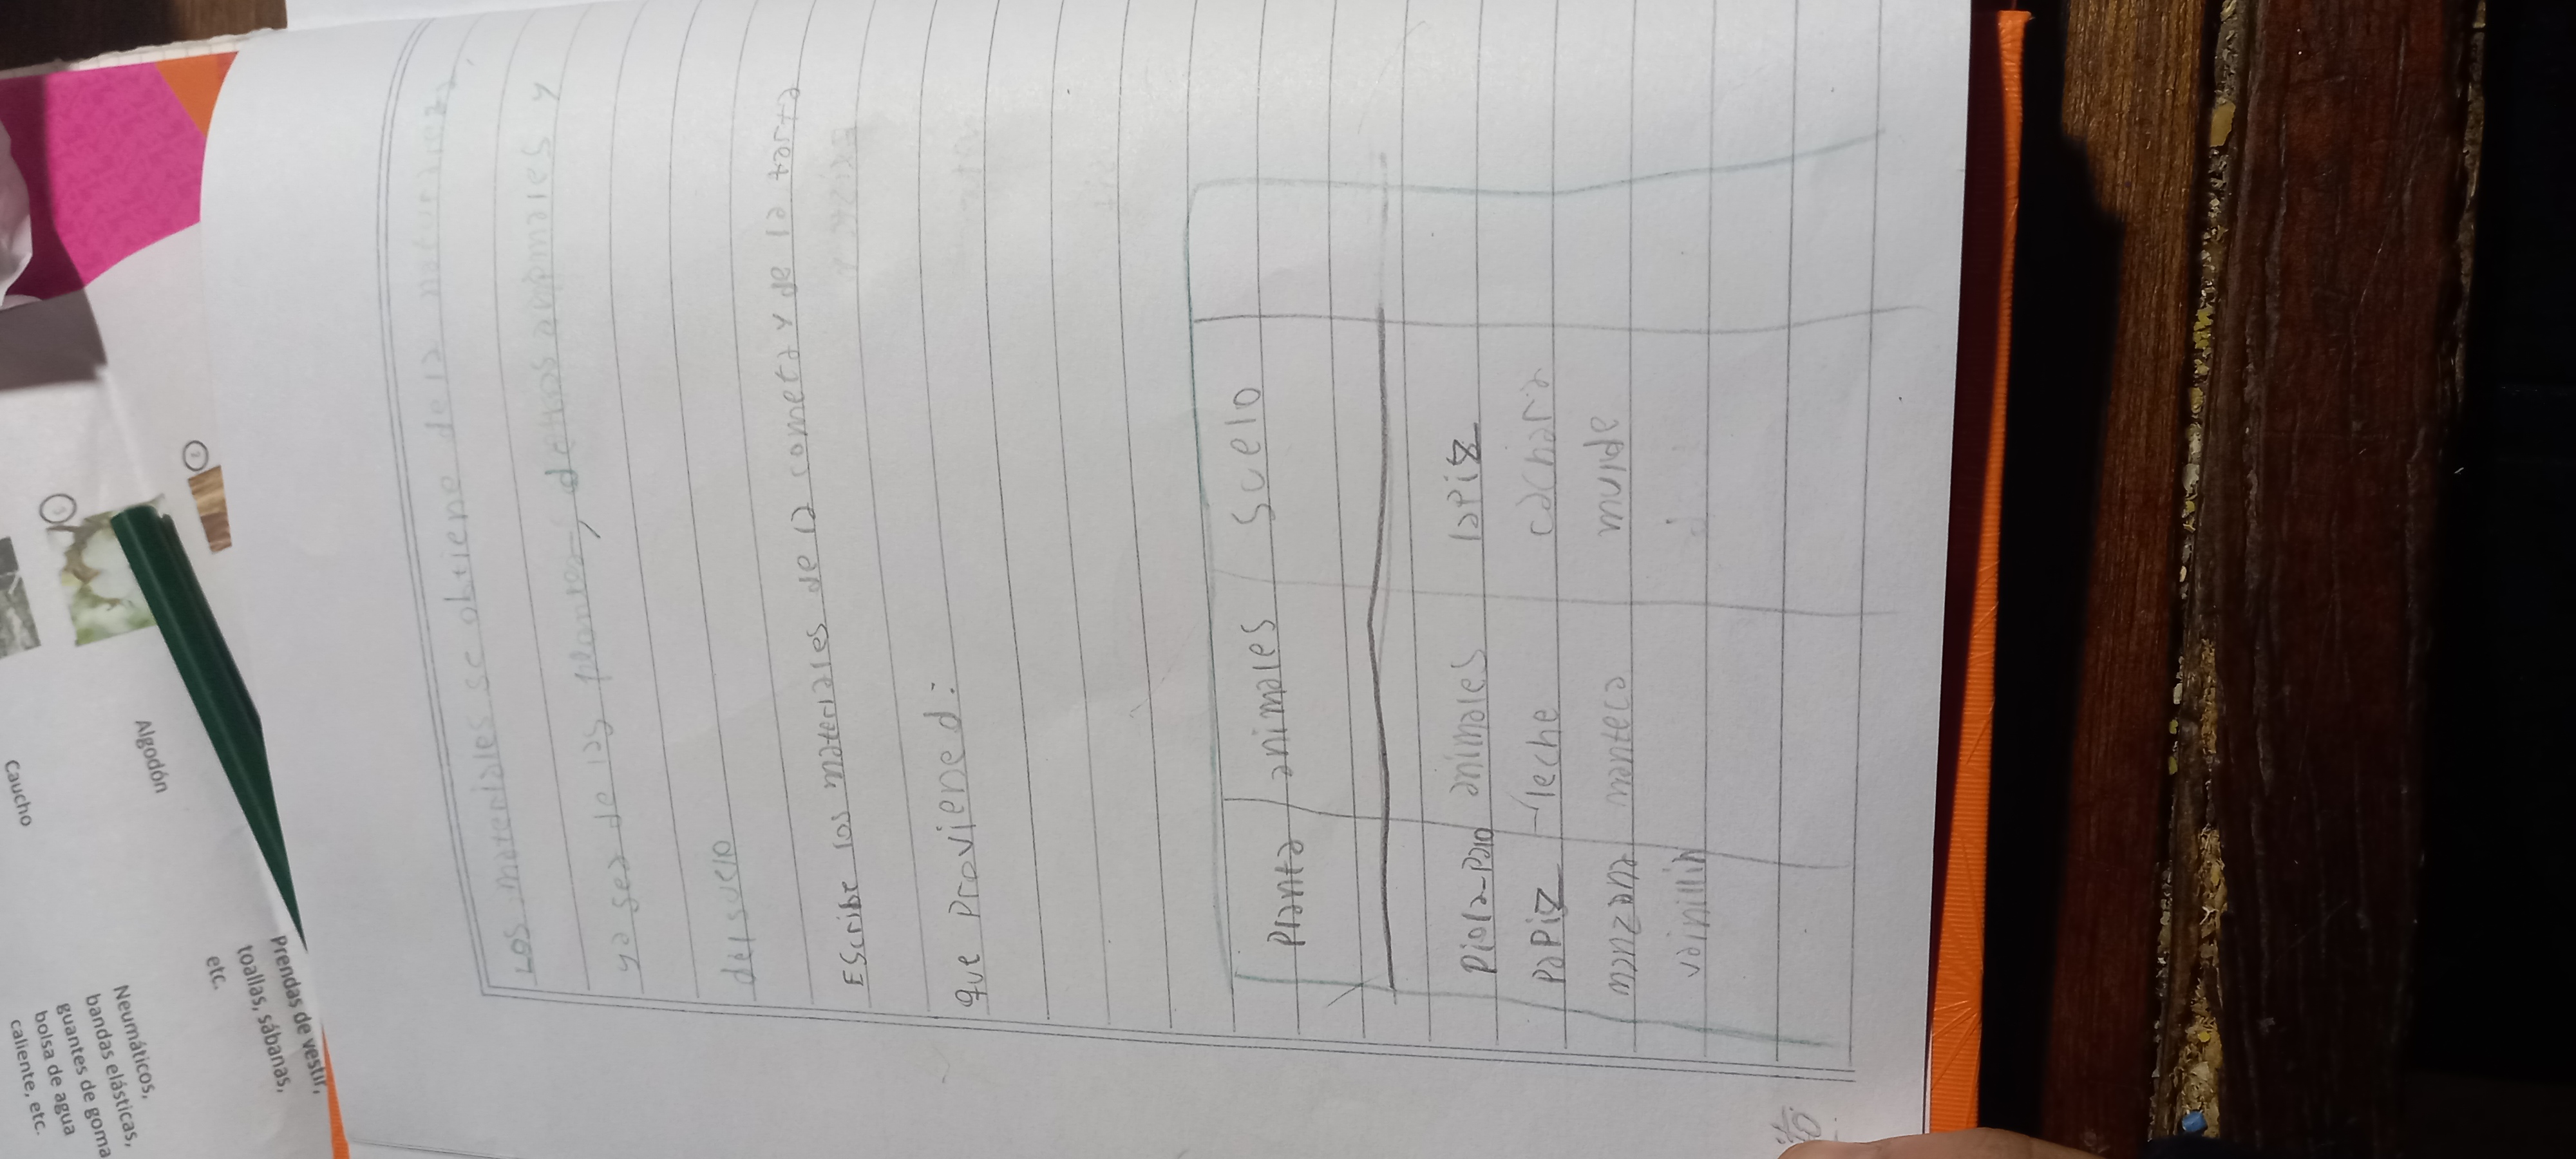 Los materiales se obtiene de la naturaleza,
ya sea de las plantas, de los animales y
del suelo
Escribe los materiales de la cometa y de la torta
que proviened:
Planta animales suelo
Piola-palo animales lapiz
papiz leche cachara
manzana manteca mulde
vainillin
Algodón
Caucho
Prendas de vestir,
toallas, sábanas,
etc.
Neumáticos,
bandas elásticas,
guantes de goma
bolsa de agua
caliente, etc.